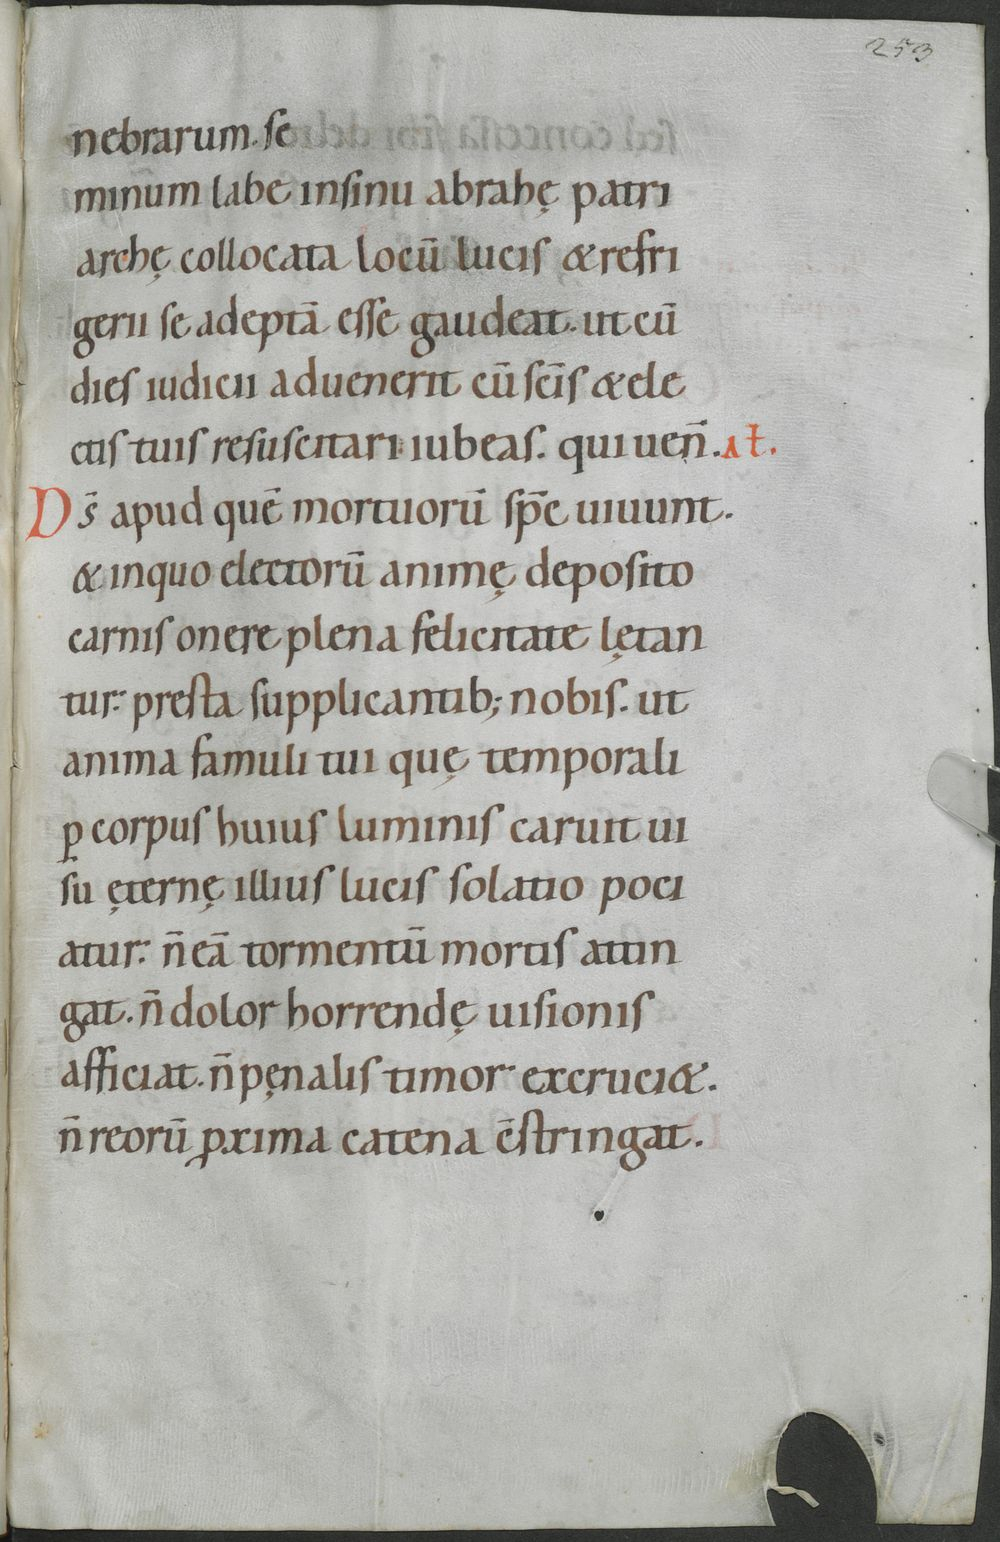 253
nebrarum. se
min̄um labe insinu abrahę patri
archę collocata locū lucis & refri
gerii se adeptā esse gaudeat. ut cū
dies iudicii aduenerit cū sc̄is & ele
ctis tuis resuscitari iubeas. qui ueñ. Aƚ.
Ds̄ apud quē mortuorū sp̄c uiuunt.
& inquo electorū animę deposito
carnis onere plena felicitate lętan
tur: presta supplicantib; nobis. ut
anima famuli tui quę temporali
ꝑ corpus huius luminis caruit ui
su ęternę illius lucis solatio poci
atur: n̄ eā tormentū mortis attin
gat. n̄ dolor horrendę uisionis
afficiat. n̄ pęnalis timor excruci&.
n̄ reorū ꝓxima catena c̄stringat.